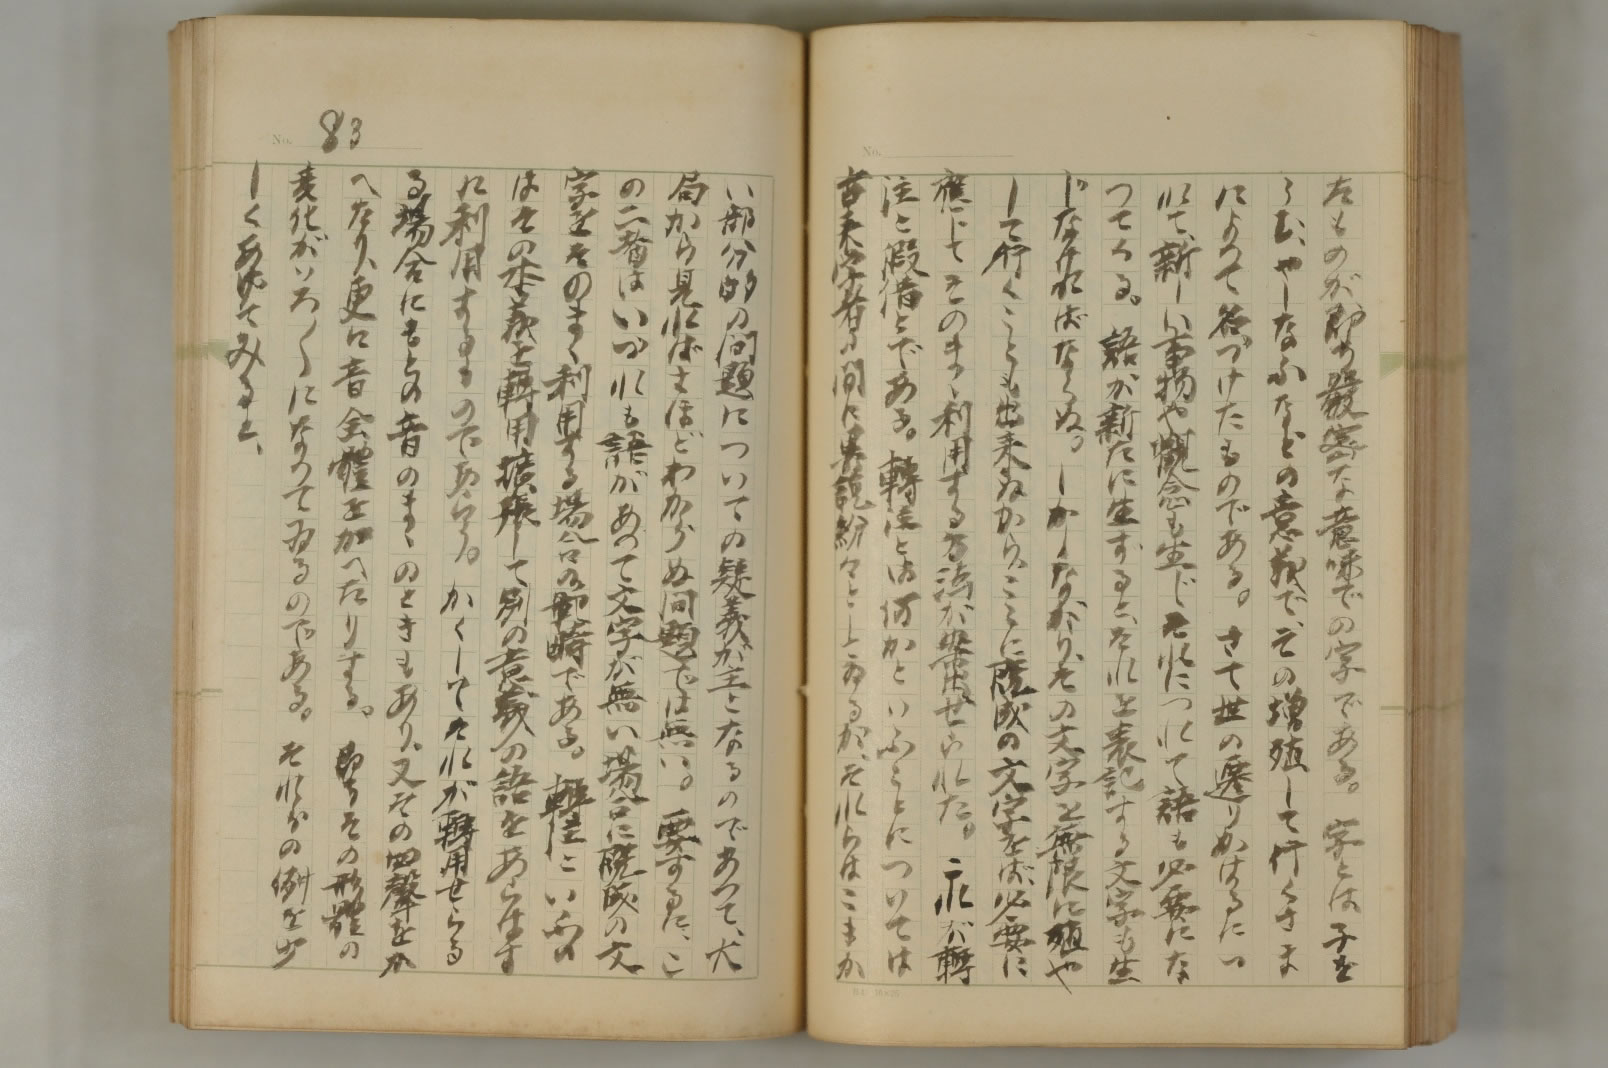 たものが即ち嚴密な意味での字である。字とは子を
うむ、やしなふなどの意義で、その増殖して行くさま
によつて名づけたものである。さて世の遷りかはるにつ
れて、新しい事物や觀念も生じ、それにつれて語も必要にな
つてくる。語が新たに生ずると、それを表記する文字も生
じなければならぬ。しかしながら、その文字を無限に殖や
して行くことも出來ぬから、ここに既成の文字をば、必要に
應じてそのまゝ利用する方法が案出せられた。これが轉
注と假借とである。轉注とは何かといふことについては
古來學者の間に異説紛々としてゐるが、それらはこまか
No.
No. 83
い部分的の問題についての疑義が主となるのであつて、大
局から見ればさほどわからぬ問題では無い。要するに、こ
の二者はいづれも語があつて文字が無い場合に既成の文
字をそのまゝ利用する場合の名稱である。轉注といふの
はその本義を轉用擴張して別の意義の語をあらはす
に利用するものであらう。かくしてそれが轉用せらる
る場合にもとの音のまゝのときもあり、又その四聲をか
へたり、更に音全體をかへたりする。即ちその形體の
變化がいろ〳〵になつてゐるのである。それらの例を少
しくあげてみると、